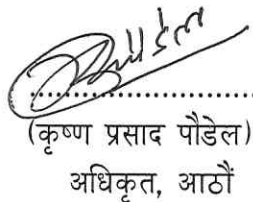 (कृष्ण प्रसाद पौडेल)
अधिकृत, आठौं